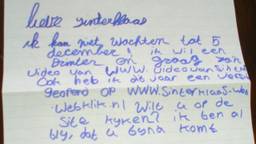 lieve sinterklaas
ik kan niet wachten tot 5
december ik wil een
printer en graag een
video van www.video van
Ook heb ik dit jaar een
op www.sinterklaas-
webklik.nl Wilt u op de
site kyken? ik ben al
bly, dat u byna komt